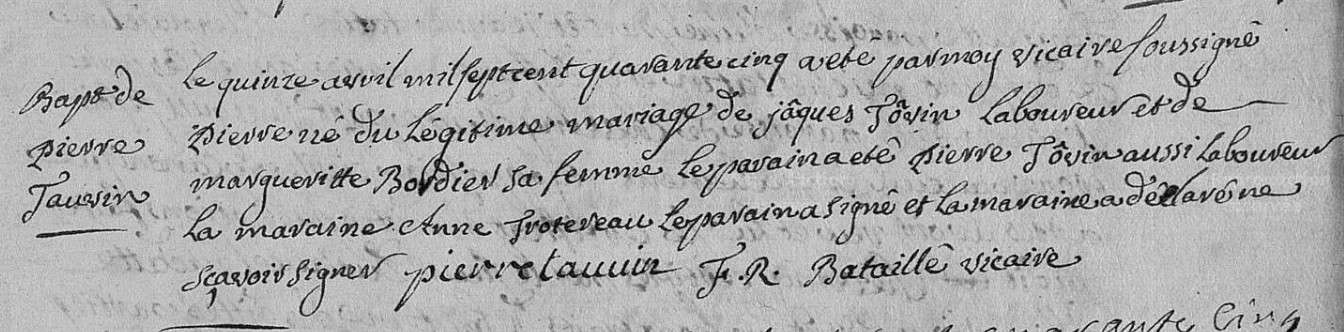 Bapt de
pierre
Tauvin
le quinze avril mil sept cent quarante cinq a eté par moy vicaire soussigné
pierre né du légitime mariage de jâques Tôvin laboureur et de
margueritte Bordier sa femme le parain a eté pierre Tôvin aussi laboureur
la maraine Anne Frotereau le parain a signé et la maraine a déclaré ne
sçavoir signer pierre tauvin F. R. Bataillé vicaire
quarante cinq